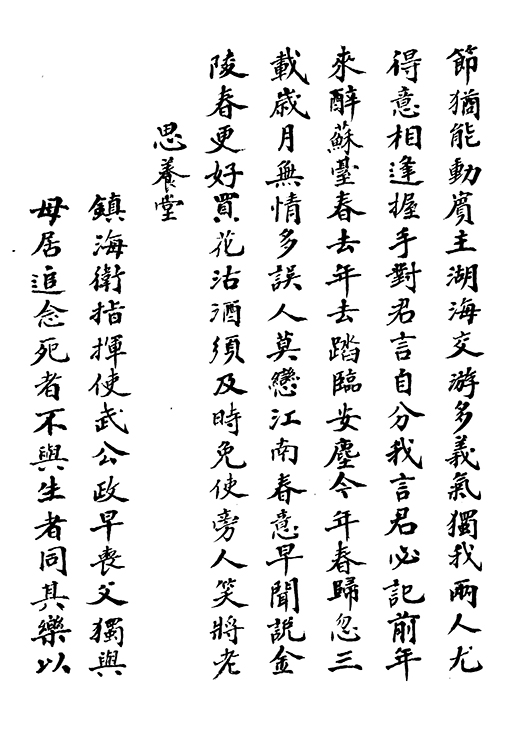 節猶能動賔主湖海交游多義氣獨我兩人尤
得意相逢握手對君言自分我言君必記前年
來醉蘇臺春去年去踏臨安塵今年春歸忽三
載歲月無情多誤人莫戀江南春意早聞説金
陵春更好買花沽酒須及時免使旁人笑將老
思養堂
鎮海衛指揮使武公政早喪父獨與
母居追念死者不與生者同其樂以